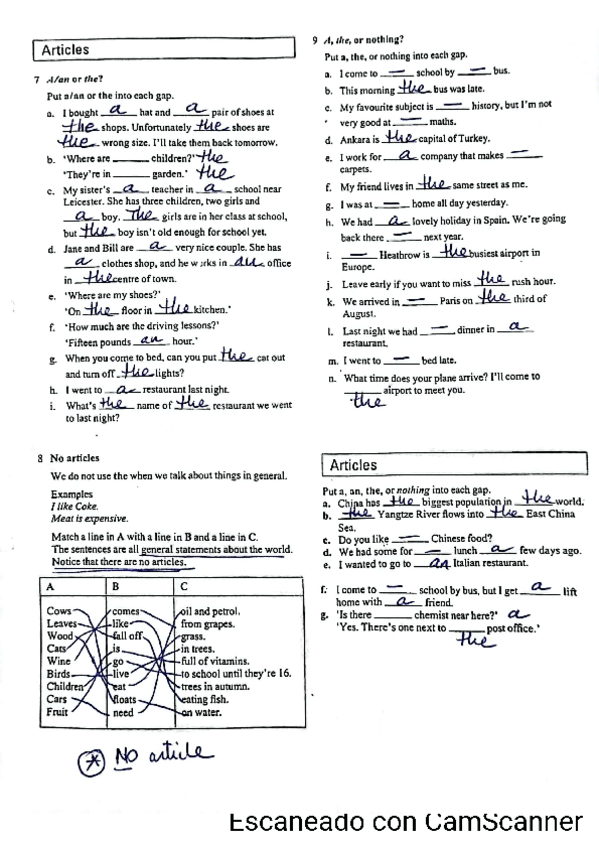 Articles
7 A/an or the?
Put a/an or the into each gap.
a. I bought a hat and a pair of shoes at
the shops. Unfortunately the shoes are
the wrong size. I'll take them back tomorrow.
b. 'Where are ______ children?' the
'They're in ______ garden.' the
c. My sister's a teacher in a school near
Leicester. She has three children, two girls and
a boy. The girls are in her class at school,
but the boy isn't old enough for school yet.
d. Jane and Bill are a very nice couple. She has
a clothes shop, and he works in an office
in the centre of town.
e. 'Where are my shoes?'
'On the floor in the kitchen.'
f. 'How much are the driving lessons?'
'Fifteen pounds an hour.'
g. When you come to bed, can you put the cat out
and turn off the lights?
h. I went to a restaurant last night.
i. What's the name of the restaurant we went
to last night?
8 No articles
We do not use the when we talk about things in general.
Examples
I like Coke.
Meat is expensive.
Match a line in A with a line in B and a line in C.
The sentences are all general statements about the world.
Notice that there are no articles.
A B C
Cows comes oil and petrol.
Leaves like from grapes.
Wood fall off grass.
Cats is in trees.
Wine go full of vitamins.
Birds live to school until they're 16.
Children eat trees in autumn.
Cars floats eating fish.
Fruit need on water.
* NO article
9 A, the, or nothing?
Put a, the, or nothing into each gap.
a. I come to — school by — bus.
b. This morning the bus was late.
c. My favourite subject is — history, but I'm not
very good at — maths.
d. Ankara is the capital of Turkey.
e. I work for a company that makes —
carpets.
f. My friend lives in the same street as me.
g. I was at — home all day yesterday.
h. We had a lovely holiday in Spain. We're going
back there — next year.
i. — Heathrow is the busiest airport in
Europe.
j. Leave early if you want to miss the rush hour.
k. We arrived in — Paris on the third of
August.
l. Last night we had — dinner in a
restaurant.
m. I went to — bed late.
n. What time does your plane arrive? I'll come to
______ airport to meet you.
the
Articles
Put a, an, the, or nothing into each gap.
a. China has the biggest population in the world.
b. the Yangtze River flows into the East China
Sea.
c. Do you like — Chinese food?
d. We had some for — lunch a few days ago.
e. I wanted to go to an Italian restaurant.
f. I come to — school by bus, but I get a lift
home with a friend.
g. 'Is there ______ chemist near here?' a
'Yes. There's one next to ______ post office.'
the
Escaneado con CamScanner